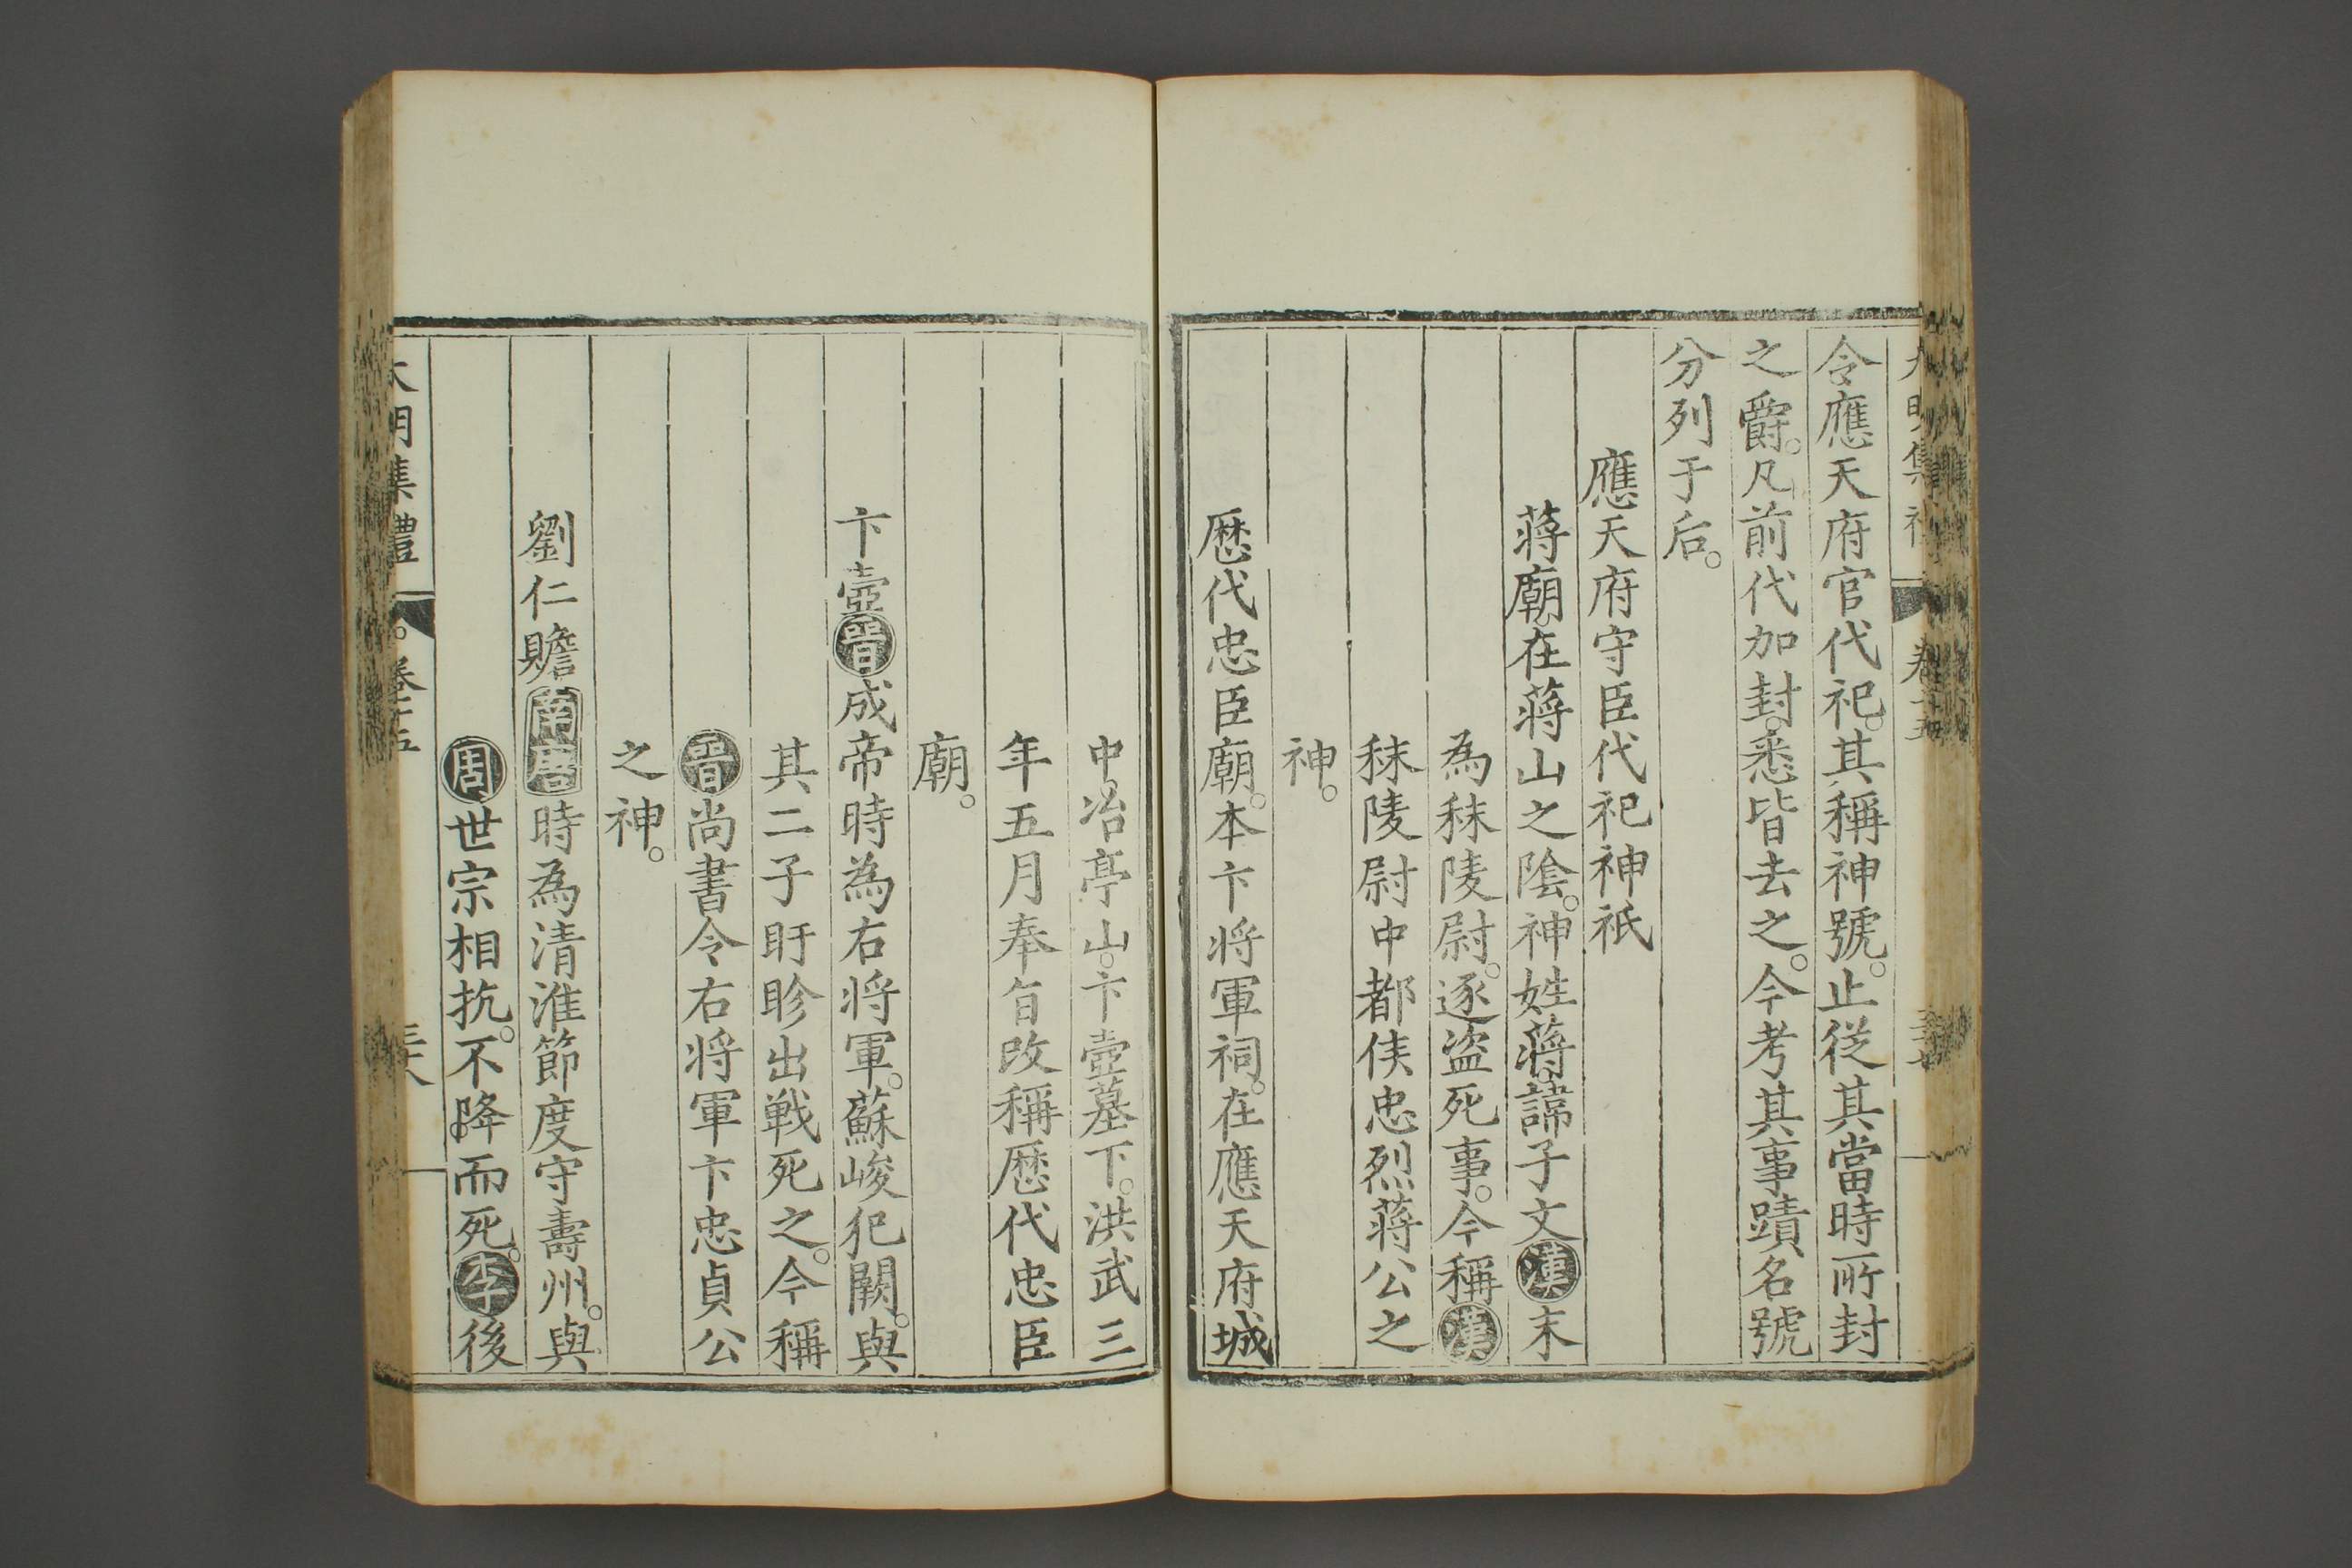 令應天府官代祀。其稱神號。止從其當時所封
之爵。凡前代加封。悉皆去之。今考其事蹟名號
分列于后。
應天府守臣代祀神祇
蔣廟。在蔣山之陰。神姓蔣。諱子文。漢末
為秣陵尉。逐盜死事。今稱漢
秣陵尉中都侯忠烈蔣公之
神。
歷代忠臣廟。本卞將軍祠。在應天府城
中。冶亭山。卞壼墓下。洪武三
年五月奉旨改稱歷代忠臣
廟。
卞壼晉成帝時為右將軍。蘇峻犯闕。與
其二子盱眕出戰死之。今稱
晉尚書令右將軍卞忠貞公
之神。
劉仁贍南唐時為清淮節度守壽州。與
周世宗相抗。不降而死。李後
大明集禮 卷十五 三十八